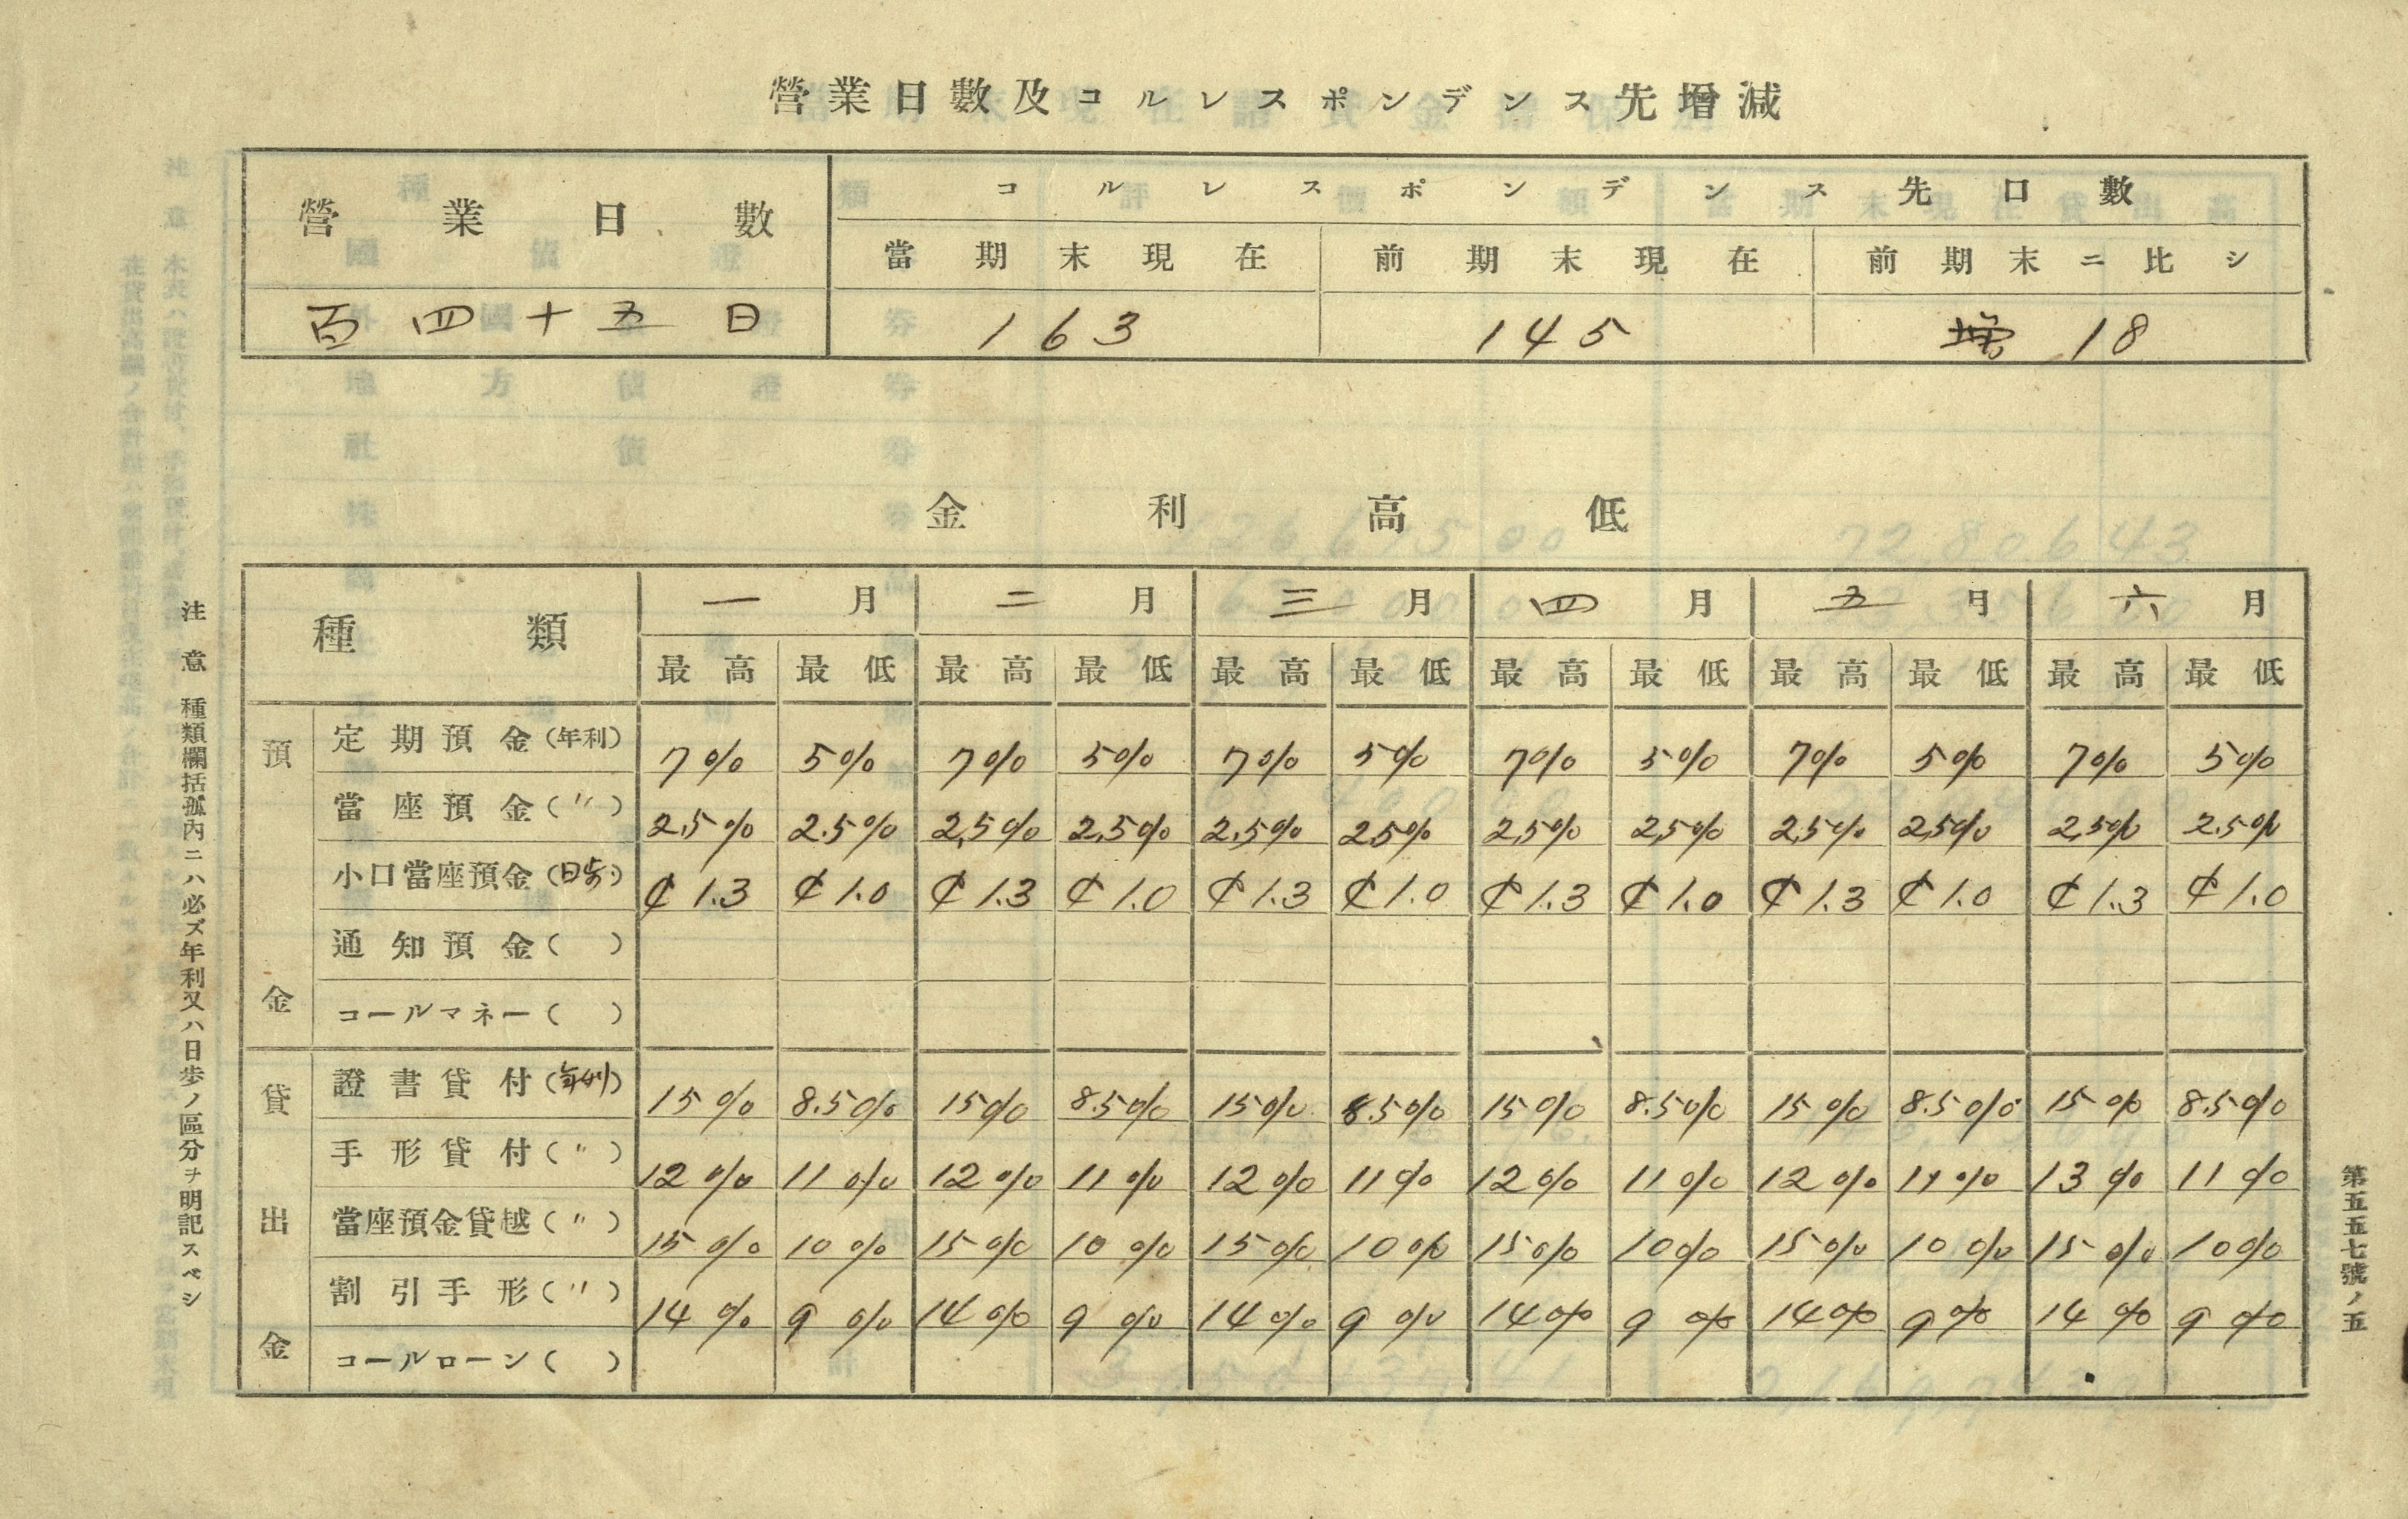 營業日數及コルレスポンデンス先增減
營業日數 コルレスポンデンス先口數
當期末現在 前期末現在 前期末ニ比シ
百四十五日 163 145 増 18
金利高低
種類 一月 二月 三月 四月 五月 六月
最高 最低 最高 最低 最高 最低 最高 最低 最高 最低 最高 最低
預金
定期預金(年利) 7% 5% 7% 5% 7% 5% 7% 5% 7% 5% 7% 5%
當座預金(〃) 2.5% 2.5% 2.5% 2.5% 2.5% 2.5% 2.5% 2.5% 2.5% 2.5% 2.5% 2.5%
小口當座預金(日歩) ¢1.3 ¢1.0 ¢1.3 ¢1.0 ¢1.3 ¢1.0 ¢1.3 ¢1.0 ¢1.3 ¢1.0 ¢1.3 ¢1.0
通知預金( )
コールマネー( )
貸出金
證書貸付(年利) 15% 8.5% 15% 8.5% 15% 8.5% 15% 8.5% 15% 8.5% 15% 8.5%
手形貸付(〃) 12% 11% 12% 11% 12% 11% 12% 11% 12% 11% 13% 11%
當座預金貸越(〃) 15% 10% 15% 10% 15% 10% 15% 10% 15% 10% 15% 10%
割引手形(〃) 14% 9% 14% 9% 14% 9% 14% 9% 14% 9% 14% 9%
コールローン( )
注意 種類欄括孤內ニハ必ズ年利又ハ日歩ノ區分ヲ明記スベシ
第五五七號ノ五